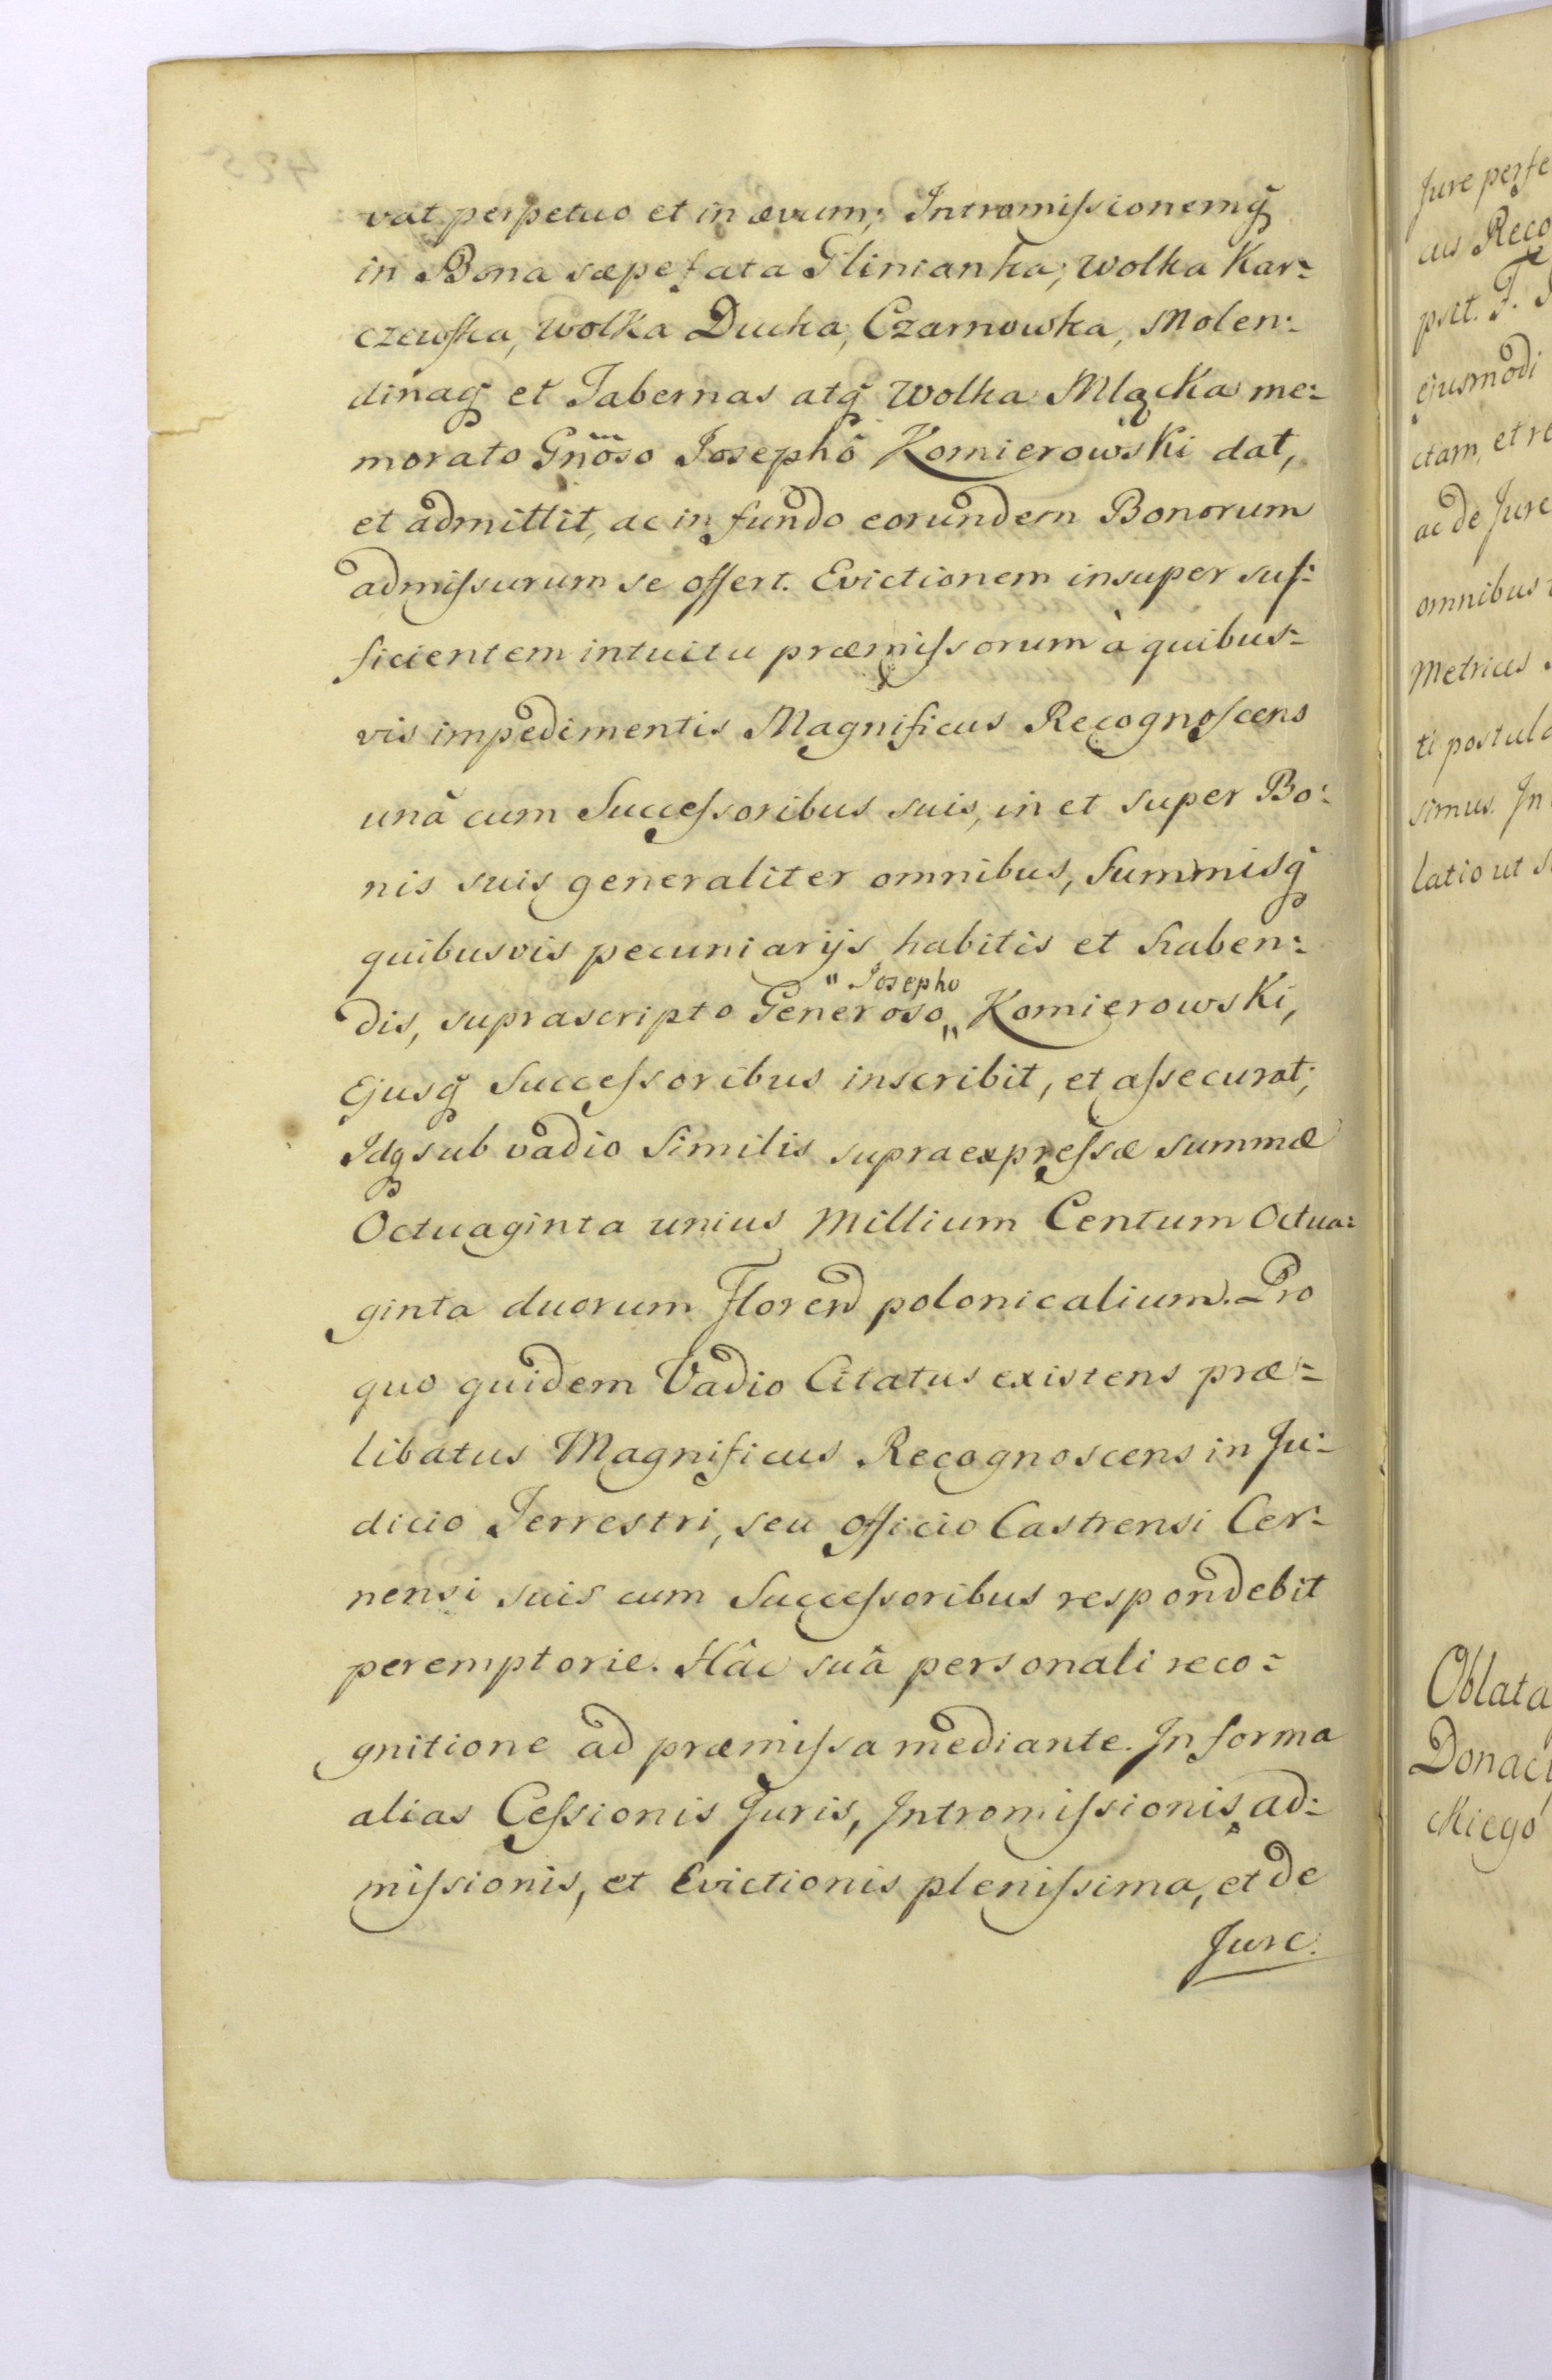 vat perpetuo et in ævum; Intromiſsionemq̃
in Bona sæpefata Glinianka, Wolka Kar=
czewska, Wolka Ducka, Czarnowka, Molen=
dinaq̃ et Tabernas atq̃ Wolka Mlącka me=
morato Gnõso Josephô Komierowski dat,
et admittit, ac in fundo eorundem Bonorum
admiſsurum se offert. Evictionem insuper suf=
ficientem intuitu præmiſsorum à quibus=
vis impedimentis Magnificus Recognoſcens
unâ cum Succeſsoribus suis, in et super Bo=
nis suis generaliter omnibus, Summisq̃
quibusvis pecuniarijs habitis et haben=
" Josepho
dis, suprascripto Generoso„ Komierowski,
Ejusq̃ Succeſsoribus inscribit, et aſsecurat;
Idq̃ sub vadio Similis supraexpreſsæ summæ
Octuaginta unius Millium Centum Octua=
ginta duorum Floren polonicalium. Pro
quo quidem Vadio Citatus existens præ=
libatus Magnificus Recognoscens in Ju=
dicio Terrestri, seu Officio Castrensi Cer=
nensi suis cum Succeſsoribus respondebit
peremptorie. Hâc suâ personali reco=
gnitione ad præmiſsa mediante. In forma
alias Ceſsionis Juris, Intromiſsionis, ad=
miſsionis, et Evictionis pleniſsima, et de
Jure.
Jure perfe
cus Reco
pstt. F.
ejusmodi
ctam, et re
ac de Jure
omnibus
Metrices
ti postula
simus. In
latio ut
Oblata
Donac
ckiego
425